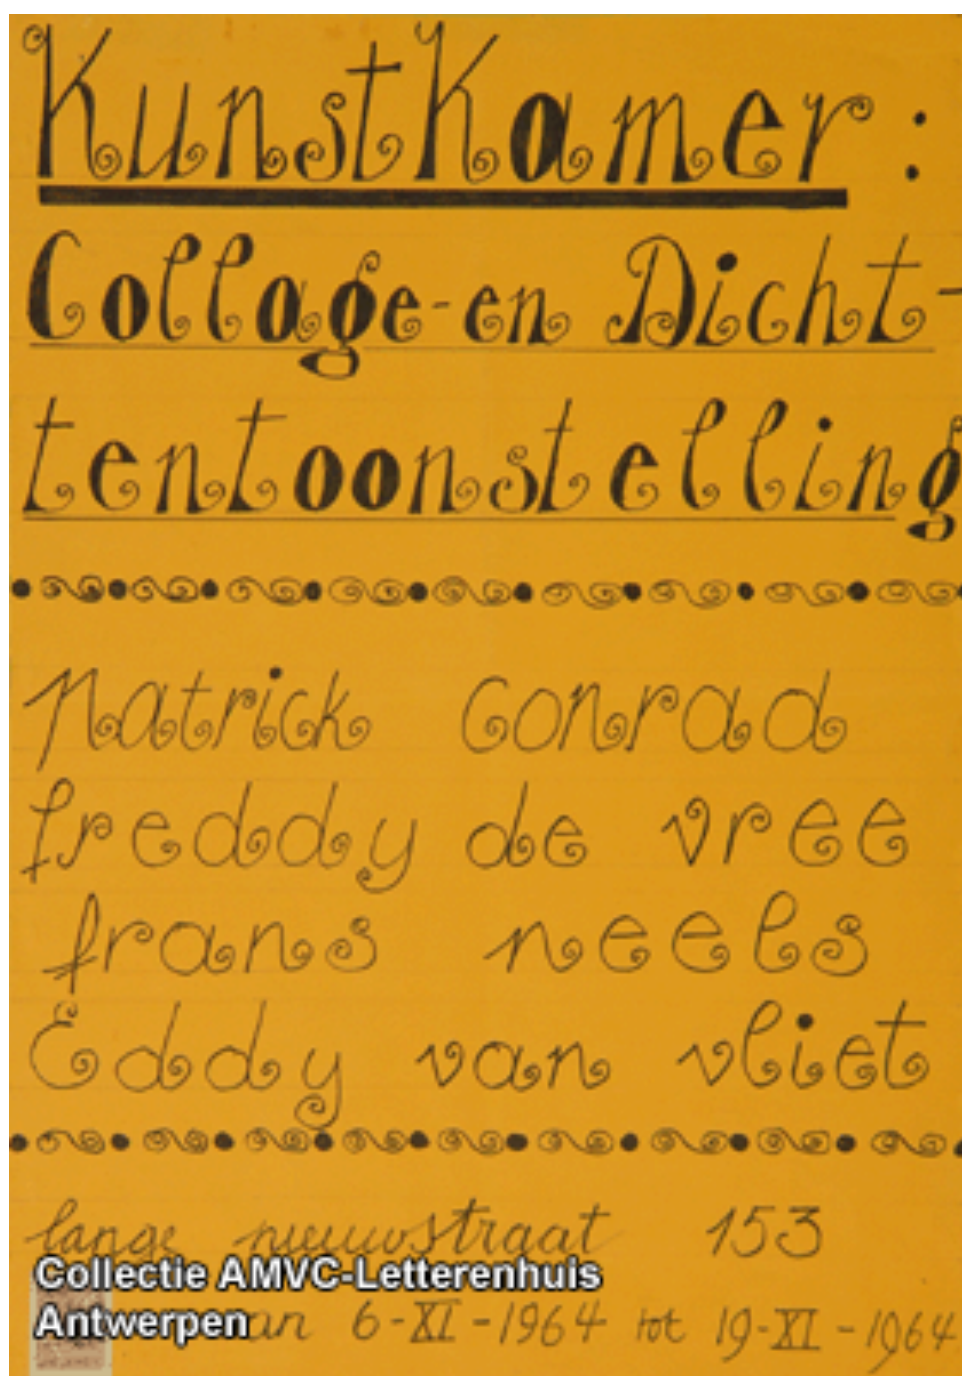 KunstKamer:
Collage-en Dicht-
tentoonstelling
Patrick Conrad
freddy de vree
frans neels
Eddy van vliet
lange nieuwstraat 153
Collectie AMVC-Letterenhuis
Antwerpen
van 6-XI-1964 tot 19-XI-1964